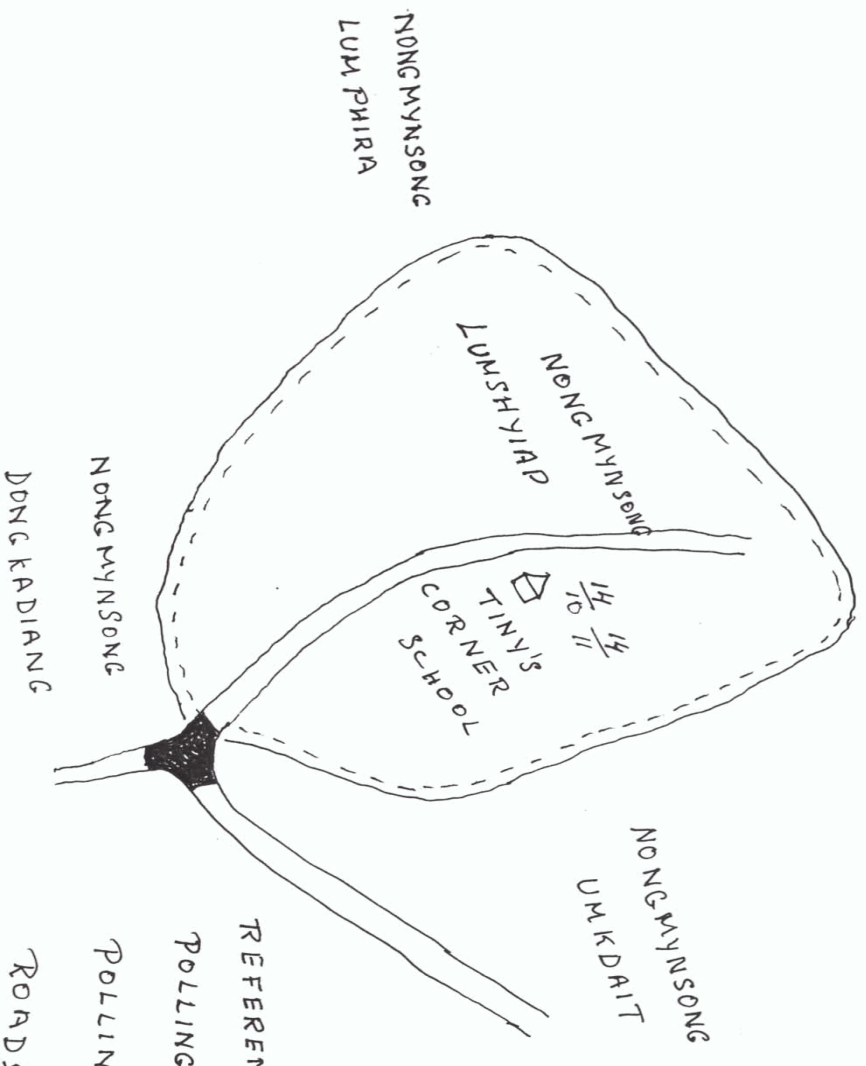 NONGMYNSONG
LUMPHIRA
NONGMYNSONG
LUMSHYIAP
14/10 14/11
TINY'S
CORNER
SCHOOL
NONGMYNSONG
UMKDAIT
NONGMYNSONG
DONGKADIANG
REFEREN
POLLING
POLLIN
ROADS